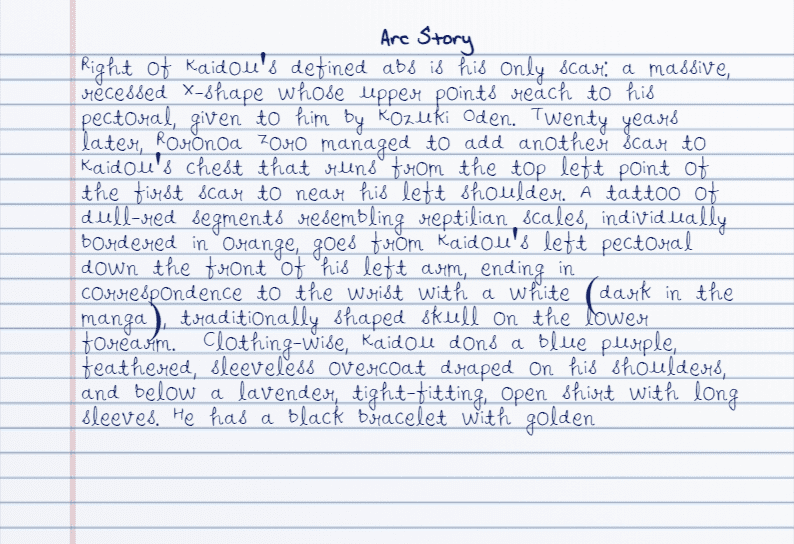 Arc Story
Right of Kaidou's defined abs is his only scar: a massive,
recessed X-shape whose upper points reach to his
pectoral, given to him by Kozuki Oden. Twenty years
later, Roronoa Zoro managed to add another scar to
Kaidou's chest that runs from the top left point of
the first scar to near his left shoulder. A tattoo of
dull-red segments resembling reptilian scales, individually
bordered in orange, goes from Kaidou's left pectoral
down the front of his left arm, ending in
correspondence to the wrist with a white (dark in the
manga), traditionally shaped skull on the lower
forearm. Clothing-wise, Kaidou dons a blue purple,
feathered, sleeveless overcoat draped on his shoulders,
and below a lavender, tight-fitting, open shirt with long
sleeves. He has a black bracelet with golden